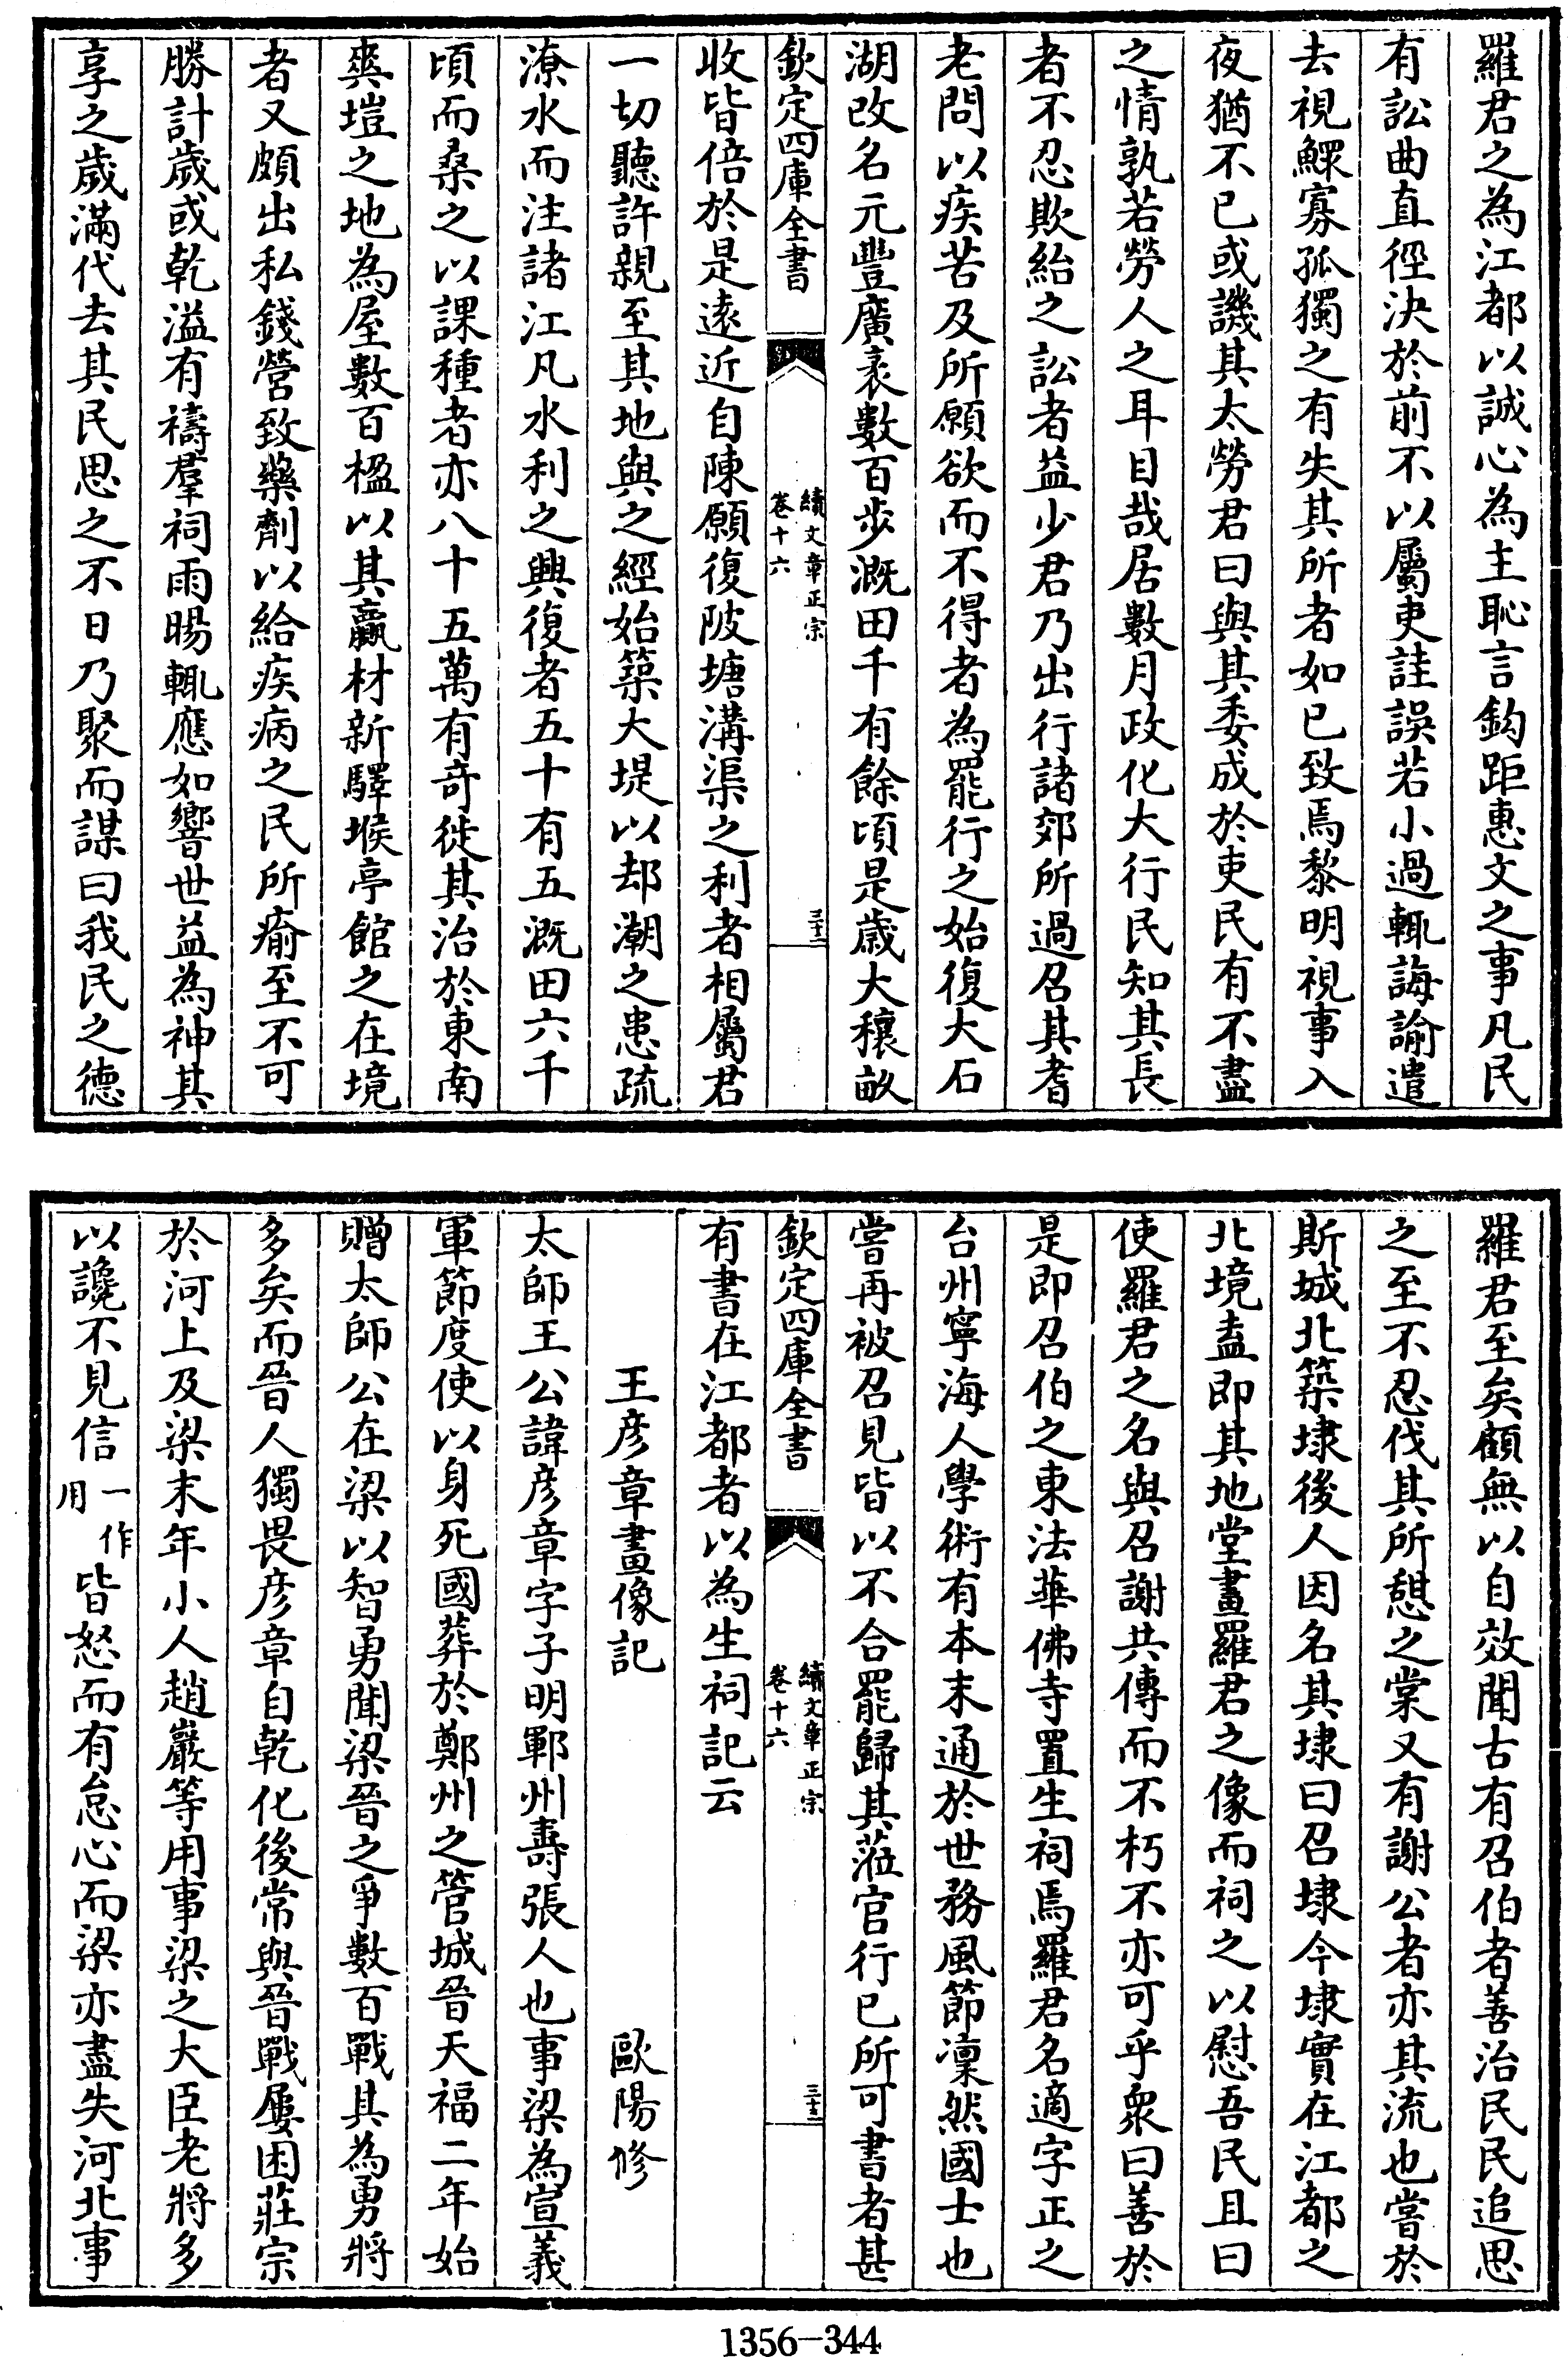 羅君之為江都以誠心為主恥言鈎距惠文之事凡民
有訟曲直徑決於前不以屬吏詿誤若小過輒誨諭遣
去視鰥寡孤獨之有失其所者如已致焉黎明視事入
夜猶不已或譏其太勞君曰與其委成於吏民有不盡
之情孰若勞人之耳目哉居數月政化大行民知其長
者不忍欺紿之訟者益少君乃出行諸郊所過召其耆
老問以疾苦及所願欲而不得者為罷行之始復大石
湖改名元豐廣袤數百步溉田千有餘頃是歲大穰畝
欽定四庫全書
續文章正宗
卷十六
三十二
收皆倍於是遠近自陳願復陂塘溝渠之利者相屬君
一切聽許親至其地與之經始築大堤以却潮之患疏
潦水而注諸江凡水利之興復者五十有五溉田六千
頃而桑之以課種者亦八十五萬有奇徙其治於東南
爽塏之地為屋數百楹以其羸材新驛堠亭館之在境
者又頗出私錢營致藥劑以給疾病之民所瘉至不可
勝計歲或乾溢有禱羣祠雨暘輒應如響世益為神其
享之歲滿代去其民思之不日乃聚而謀曰我民之德
羅君至矣顧無以自效聞古有召伯者善治民民追思
之至不忍伐其所憩之棠又有謝公者亦其流也嘗於
斯城北築埭後人因名其埭曰召埭今埭實在江都之
北境盍即其地堂畫羅君之像而祠之以慰吾民且曰
使羅君之名與召謝共傳而不朽不亦可乎衆曰善於
是即召伯之東法華佛寺置生祠焉羅君名適字正之
台州寧海人學術有本末通於世務風節凜然國士也
嘗再被召見皆以不合罷歸其蒞官行已所可書者甚
欽定四庫全書
續文章正宗
卷十六
三十三
有書在江都者以為生祠記云
王彥章畫像記 歐陽修
太師王公諱彥章字子明鄆州壽張人也事梁為宣義
軍節度使以身死國葬於鄭州之管城晉天福二年始
贈太師公在梁以智勇聞梁晉之爭數百戰其為勇將
多矣而晉人獨畏彥章自乾化後常與晉戰屢困莊宗
於河上及梁末年小人趙巖等用事梁之大臣老將多
以讒不見信一作用皆怒而有怠心而梁亦盡失河北事
1356-344